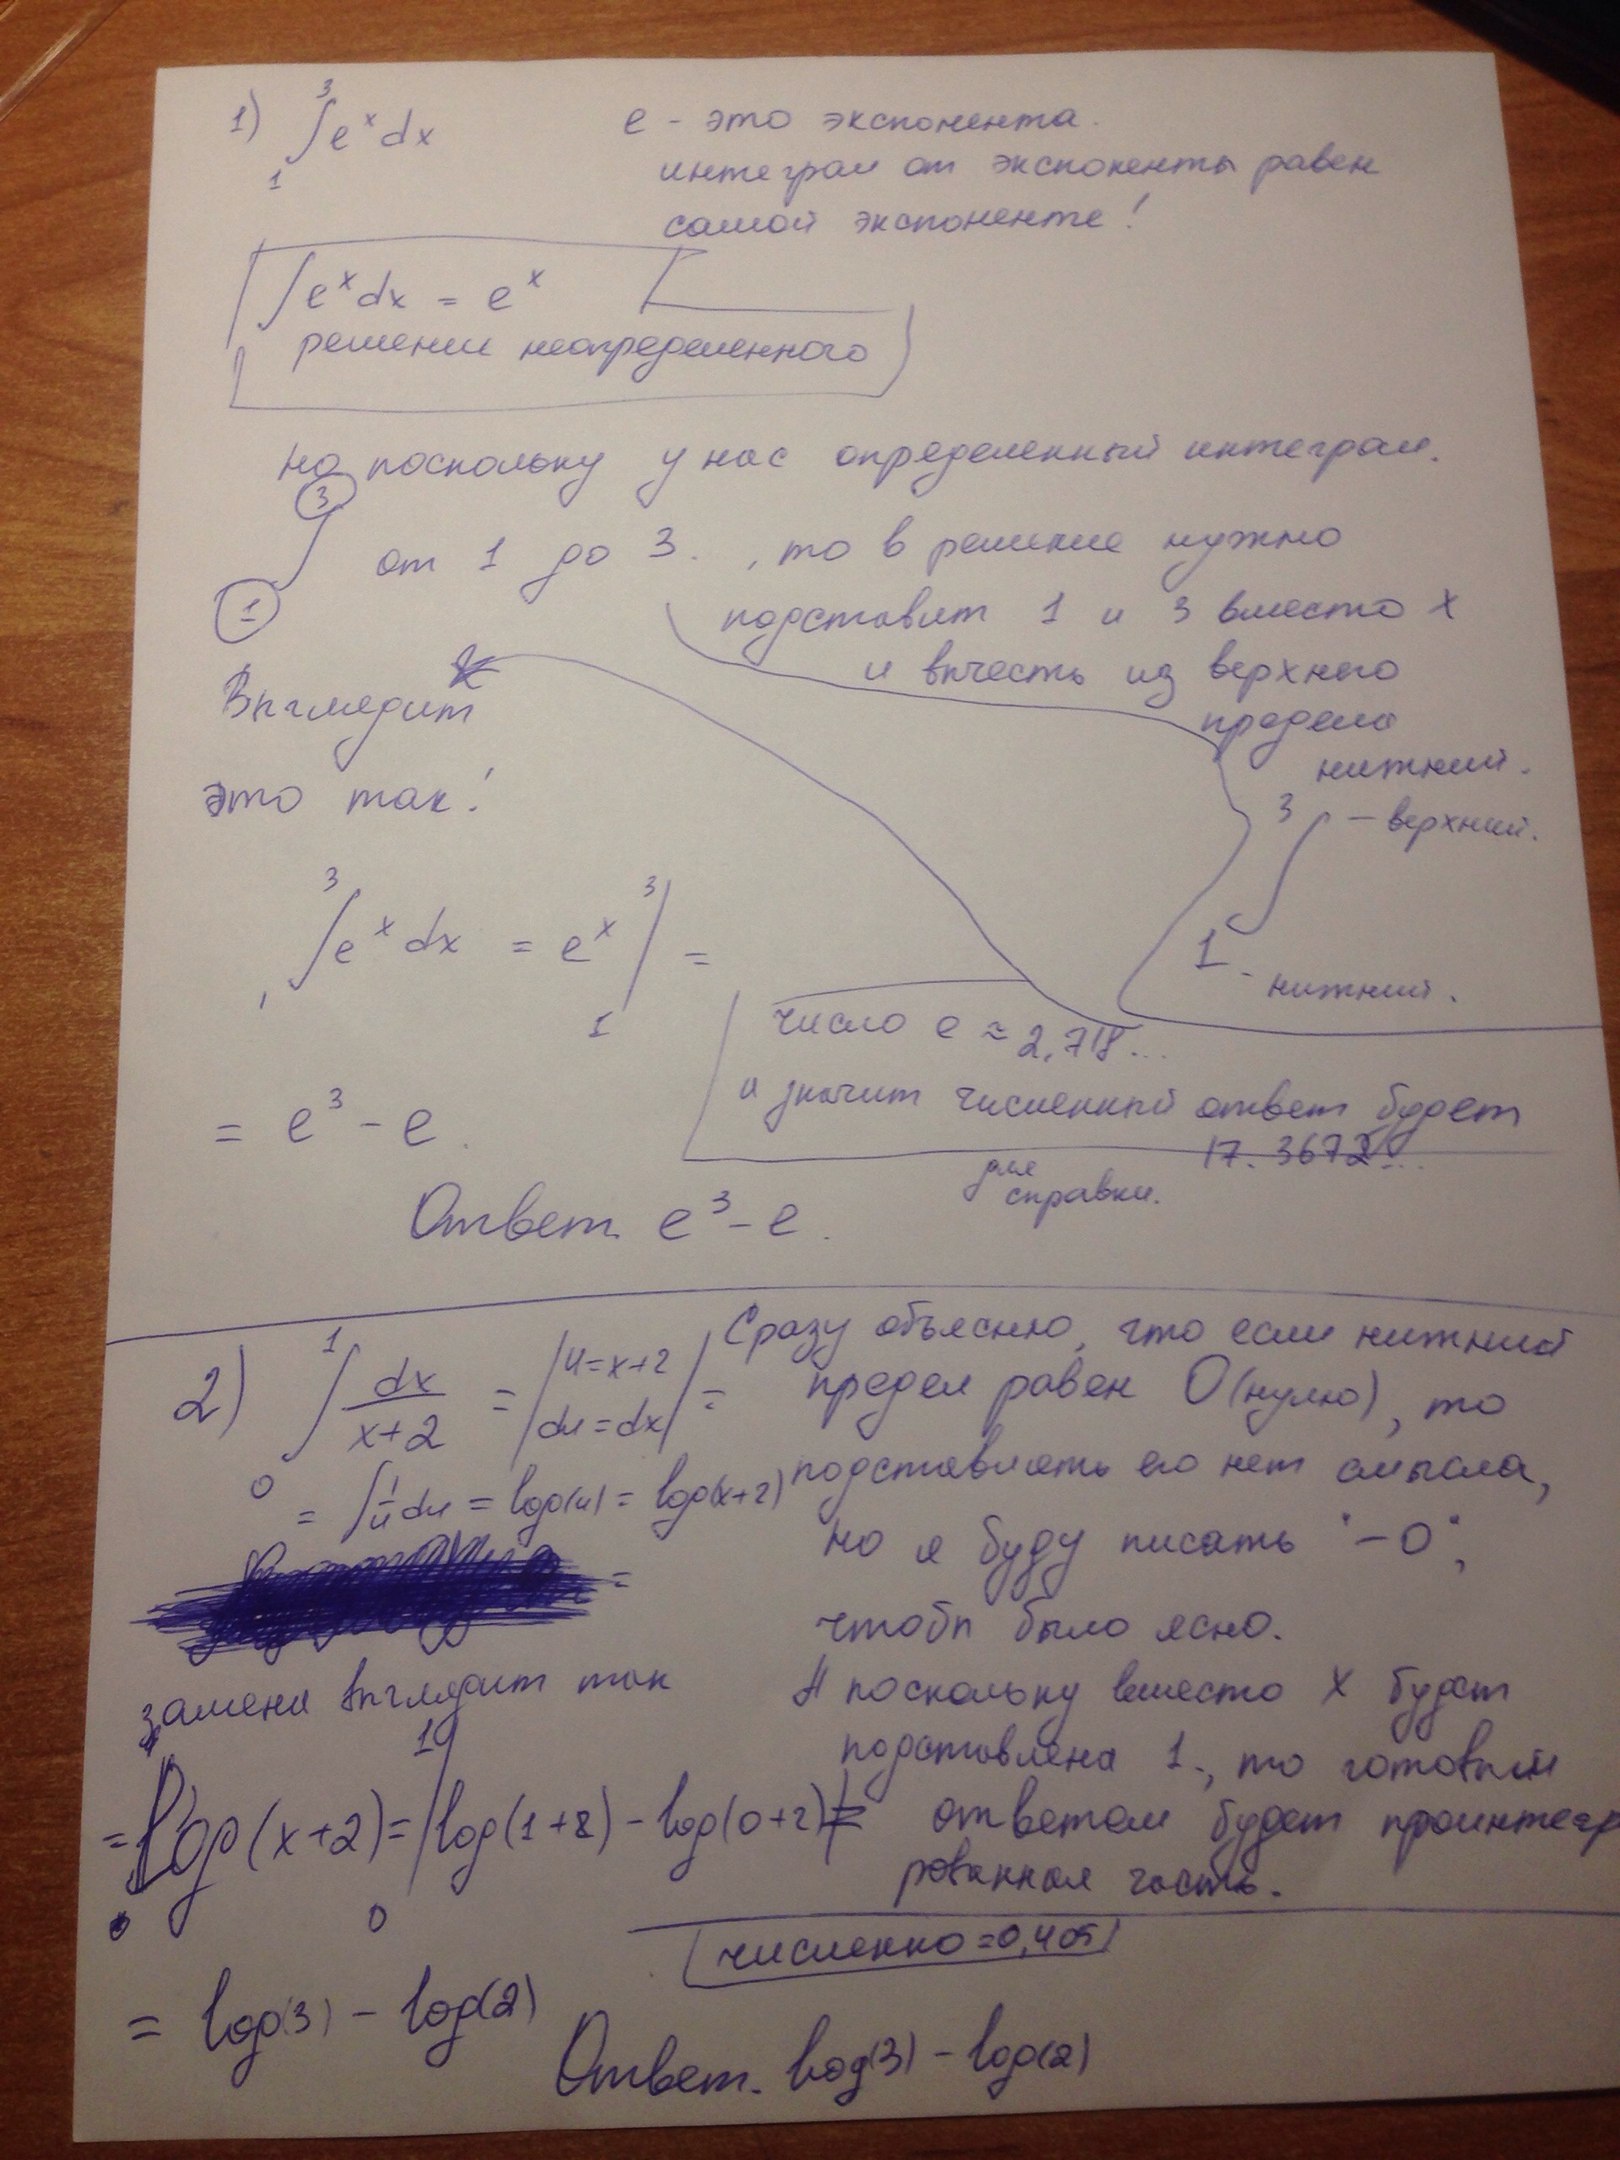 1) ∫₁³ eˣ dx
e - это экспонента.
интеграл от экспоненты равен
самой экспоненте!
∫eˣdx = eˣ
решении неопределенного
но поскольку у нас определенный интеграл.
3
∫
1
от 1 до 3. , то в решение нужно
подставит 1 и 3 вместо x
и вычесть из верхнего
предела
нижний.
3 - верхний.
∫
1 - нижний.
Выглядит
это так!
∫₁³ eˣ dx = eˣ |₁³ =
= e³ - e.
число e ≈ 2,718...
и значит численный ответ будет
17.3672...
для
справки.
Ответ. e³ - e.
2) ∫₀¹ dx/(x+2) = |u=x+2 du=dx| =
= ∫ 1/u du = log(u) = log(x+2)
=
замена выглядит так
= log(x+2) = |₀¹ log(1+2) - log(0+2) =
= log(3) - log(2)
Сразу объясню, что если нижний
предел равен 0 (нулю), то
подставлять его нет смысла,
но я буду писать "-0",
чтобы было ясно.
А поскольку вместо X будет
подставлена 1., то готовый
ответом будет проинтегр
рованная часть.
численно = 0,405
Ответ. log(3) - log(2)